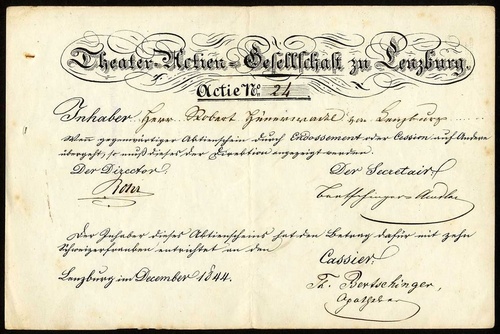 Theater-Actien-Gesellschaft zu Lenzburg.
Actie No. 24
Inhaber Herr Robert Hünerwadel von Lenzburg
Wenn gegenwärtiger Aktienschein durch Endossement oder Cession auf Andere
übergeht, so muß dieses der Direktion angezeigt werden.
Der Director Der Secretair
Bertschinger-Amsler
Der Inhaber dieses Aktienscheins hat den Betrag dafür mit zehn
Schweizerfranken entrichtet an den
Cassier
Lenzburg im December 1844.
Th. Bertschinger,
Apotheker